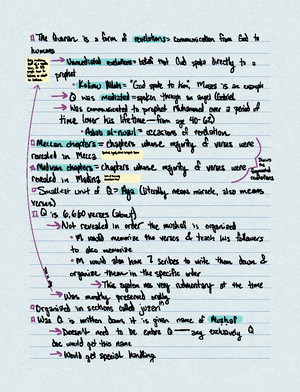 The Quran is a form of revelations = communication from God to
humans
→ Unmediated revelations = belief that God spoke directly to a
prophet
• Kalimu Allah = "God spoke to him" Moses is an example
→ Q was mediated = spoken through an angel (Gabriel)
→ Was communicated to prophet Muhammad over a period of
time over his lifetime — from age 40-62)
• Asbab al-nuzul = occasions of revelation
Meccan chapters = chapters whose majority of verses were
revealed in Mecca
Medinan chapters = chapters whose majority of verses were
revealed in Madina
Smallest unit of Q = Aya (literally means miracle, also means
verses)
Q is 6,660 verses (about)
→ Not revealed in order the mushaf is organized
• M would memorize the verses & teach his followers
to also memorize
• M would also have 7 scribes to write them down &
organize them in the specific order
→ This system was very rudimentary at the time
→ Was mostly preserved orally
Organized in sections called juzen
Was Q is written down it is given name of Mushaf
→ Doesn't need to be entire Q — any exclusively Q
doc would get this name
→ Would get special handling